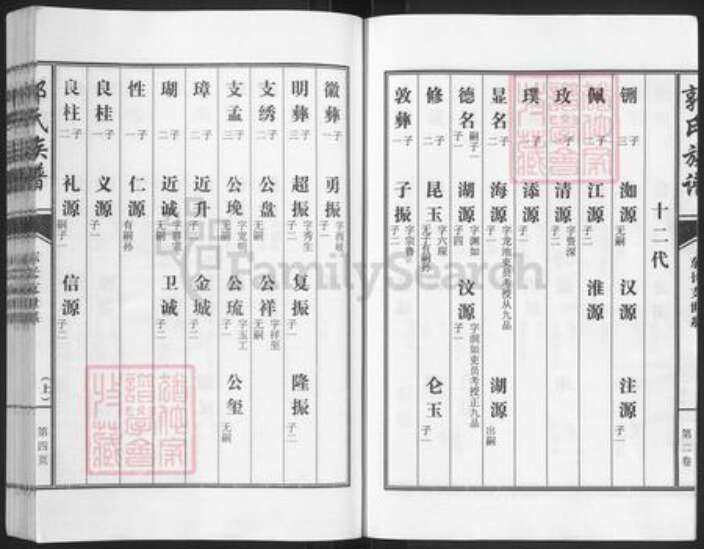 郭氏族谱
第二卷
十二代
铏 三子 洳源 无嗣 汉源 注源 子一
佩 二子 江源 子二 淮源
玫 子 清源 字资深 子二
璞 子 添源 子一
显名 二子 海源 字龙池吏员考授从九品 子一 湖源 出嗣
德名 嗣子一 子一 湖源 字渊如 子四 汶源 字润如吏员考授正九品 子一
修 二子 昆玉 字六琛 无子有嗣孙 仑玉 子一
敦彝 一子 子振 字宗鲁 子二
徽彝 一子 勇振 子一
明彝 三子 超振 字秀生 子二 复振 子一 隆振 子二
支绣 二子 公盘 无嗣 公祥 字祥至 无嗣
支孟 三子 公琬 无嗣 公琉 字玉工 子一 公玺 无嗣
璋 二子 近升 子一 金城 子二
瑚 二子 近诚 无嗣 卫诚 子一
性 一子 仁源 有嗣孙
良桂 一子 义源 子一
良柱 二子 礼源 嗣子一 信源 子二
氏族谱
(上)
第四页
FamilySearch